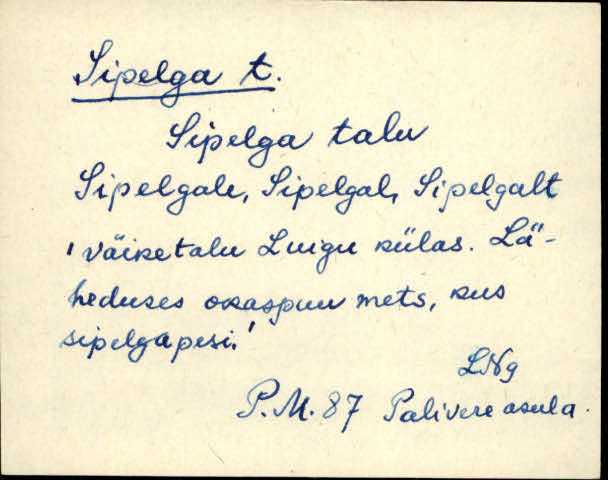 Sipelga t.
Sipelga talu
Sipelgale, Sipelgal, Sipelgalt
'väiketalu Luigu külas. Lä-
heduses okaspuu mets, kus
sipelgapesi.'
LNg
P.M. 87 Palivere asula.